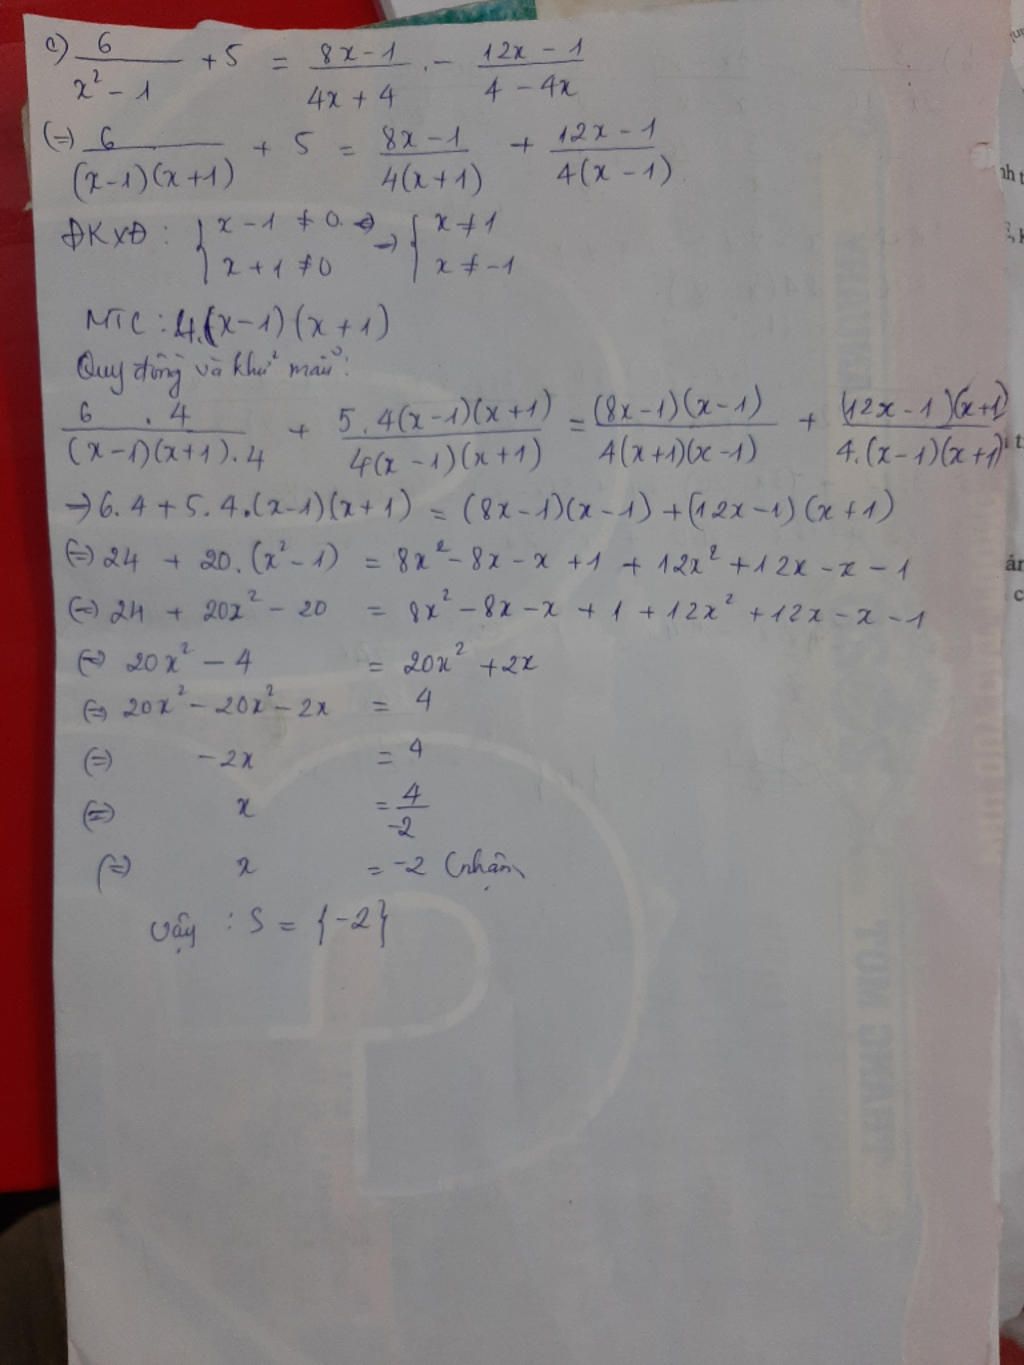 c) 6/(x² - 1) + 5 = (8x - 1)/(4x + 4) - (12x - 1)/(4 - 4x)
(=) 6/((x-1)(x+1)) + 5 = (8x - 1)/(4(x+1)) + (12x - 1)/(4(x - 1))
ĐKXĐ : { x - 1 ≠ 0 → { x ≠ 1
x + 1 ≠ 0 x ≠ -1
MTC : 4.(x-1)(x+1)
Quy đồng và khử mẫu :
(6 . 4)/((x-1)(x+1).4) + (5.4(x-1)(x+1))/(4(x-1)(x+1)) = ((8x-1)(x-1))/(4(x+1)(x-1)) + ((12x-1)(x+1))/(4.(x-1)(x+1))
→ 6.4 + 5.4.(x-1)(x+1) = (8x-1)(x-1) + (12x-1)(x+1)
(=) 24 + 20.(x² - 1) = 8x² - 8x - x + 1 + 12x² + 12x - x - 1
(=) 24 + 20x² - 20 = 8x² - 8x - x + 1 + 12x² + 12x - x - 1
(=) 20x² - 4 = 20x² + 2x
(=) 20x² - 20x² - 2x = 4
(=) -2x = 4
(=) x = 4/-2
(=) x = -2 (nhận)
Vậy : S = {-2}
TRANG MỘT